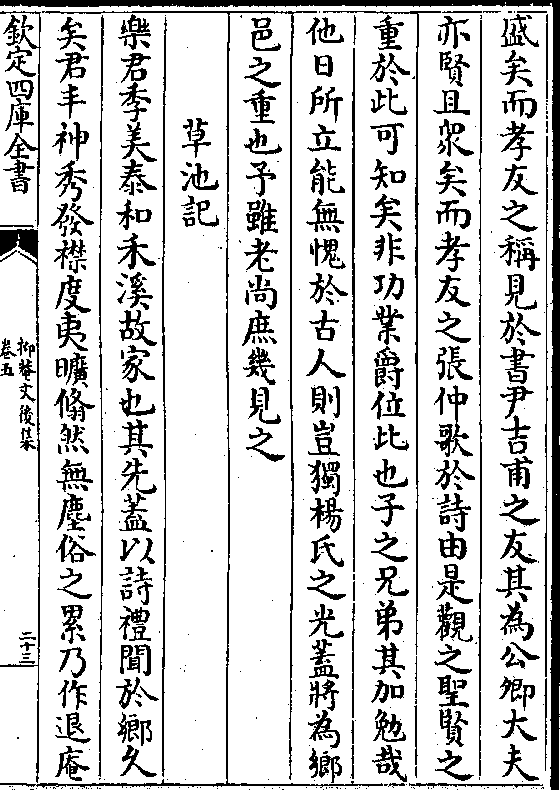 盛矣而孝友之稱見於書尹吉甫之友其為公卿大夫
亦賢且衆矣而孝友之張仲歌於詩由是觀之聖賢之
重於此可知矣非功業爵位比也子之兄弟其加勉哉
他日所立能無愧於古人則豈獨楊氏之光蓋將為鄉
邑之重也予雖老尚庶幾見之
草池記
樂君季美泰和禾溪故家也其先蓋以詩禮聞於鄉久
矣君丰神秀發襟度夷曠翛然無塵俗之累乃作退庵
欽定四庫全書
抑菴文後集
卷五
二十三